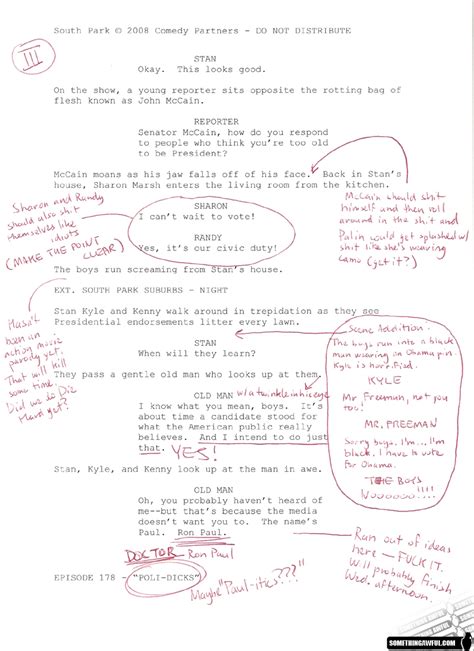 South Park © 2008 Comedy Partners - DO NOT DISTRIBUTE
III
STAN
Okay. This looks good.
On the show, a young reporter sits opposite the rotting bag of
flesh known as John McCain.
REPORTER
Senator McCain, how do you respond
to people who think you're too old
to be President?
McCain moans as his jaw falls off of his face. Back in Stan's
house, Sharon Marsh enters the living room from the kitchen.
Sharon and Randy
should also shit
themselves like
idiots
(MAKE THE POINT
CLEAR)
SHARON
I can't wait to vote!
RANDY
Yes, it's our civic duty!
McCain should shit
himself and then roll
around in the shit and
Palin would get splashed w/
shit like she's wearing
camo (get it?)
The boys run screaming from Stan's house.
EXT. SOUTH PARK SUBURBS - NIGHT
Stan Kyle and Kenny walk around in trepidation as they see
Presidential endorsements litter every lawn.
Hasn't
been an
action movie
parody yet.
That will kill
some time.
Did we do Die
Hard yet?
STAN
When will they learn?
They pass a gentle old man who looks up at them.
OLD MAN w/a twinkle in his eye
I know what you mean, boys. It's
about time a candidate stood for
what the American public really
believes. And I intend to do just
that. YES!
Scene Addition.
The boys run into a black
man wearing an Obama pin.
Kyle is horrified.
KYLE
Mr. Freeman, not you
too!
MR. FREEMAN
Sorry boys. I'm... I'm
black. I have to vote
for Obama.
THE BOYS
Nooooooo!!!!
Stan, Kyle, and Kenny look up at the man in awe.
OLD MAN
Oh, you probably haven't heard of
me--but that's because the media
doesn't want you to. The name's
Paul. Ron Paul.
DOCTOR Ron Paul
Ran out of ideas
here — FUCK IT.
Will probably finish
Wed. afternoon.
EPISODE 178 - "POLI-DICKS"
Maybe "Paul-itics???"
SOMETHINGAWFUL.COM